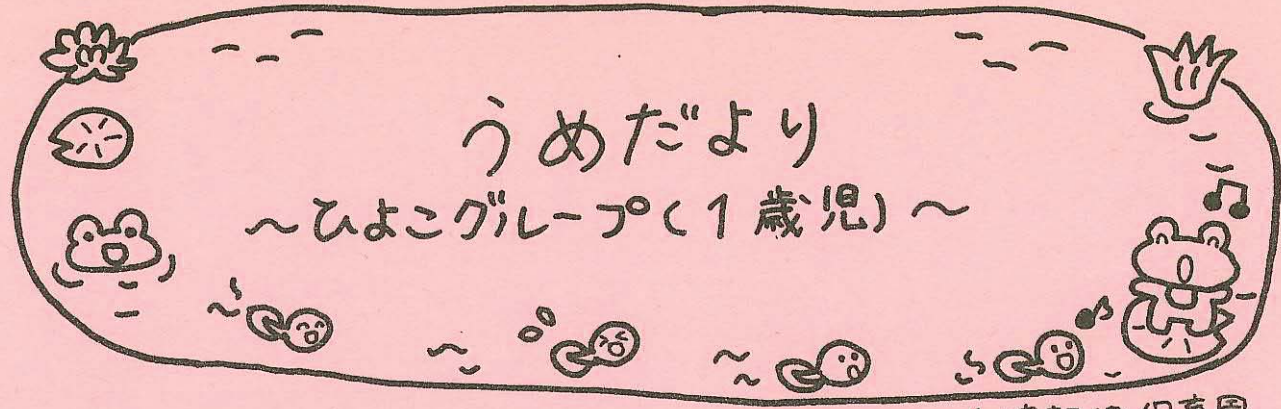 うめだより
～ひよこグループ(1歳児)～
保育園